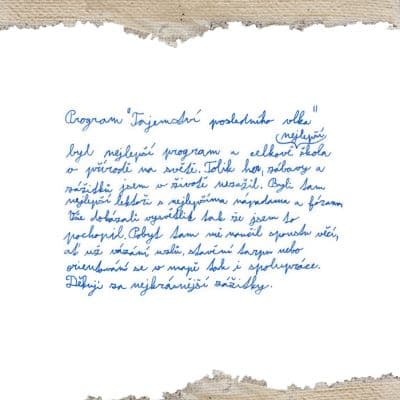 Program "Tajemství posledního vlka"
nejlepší
byl nejlepší program a celkově škola
v přírodě na světě. Tolik her, zábavy a
zážitků jsem v životě nezažil. Byli tam
nejlepší lektoři s nejlepšíma nápadama a fórama.
Vše dokázali vysvětlit tak že jsem to
pochopil. Pobyt tam mě naučil spoustu věcí,
ať už vázání uzlů, stavění tarpu nebo
orientování se v mapě tak i spolupráce.
Děkuji za nejkrásnější zážitky.